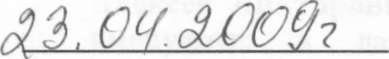 23.04.2009г